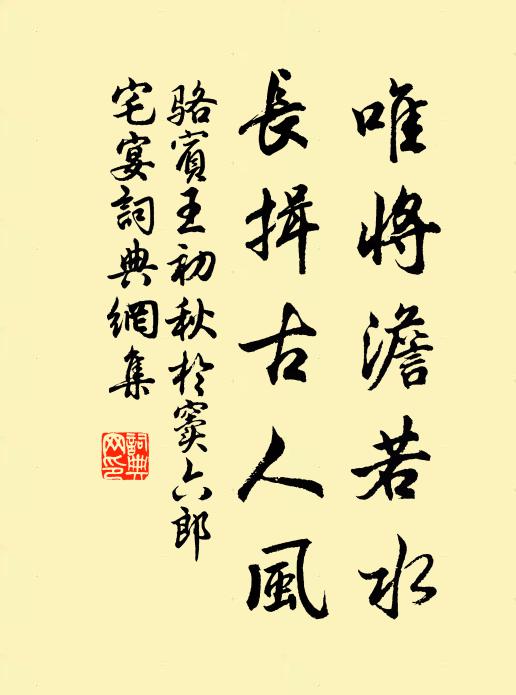 唯將澹若水
長揖古人風
駱賓王初秋於竇六郎
宅宴詞典網集
詞典
网印